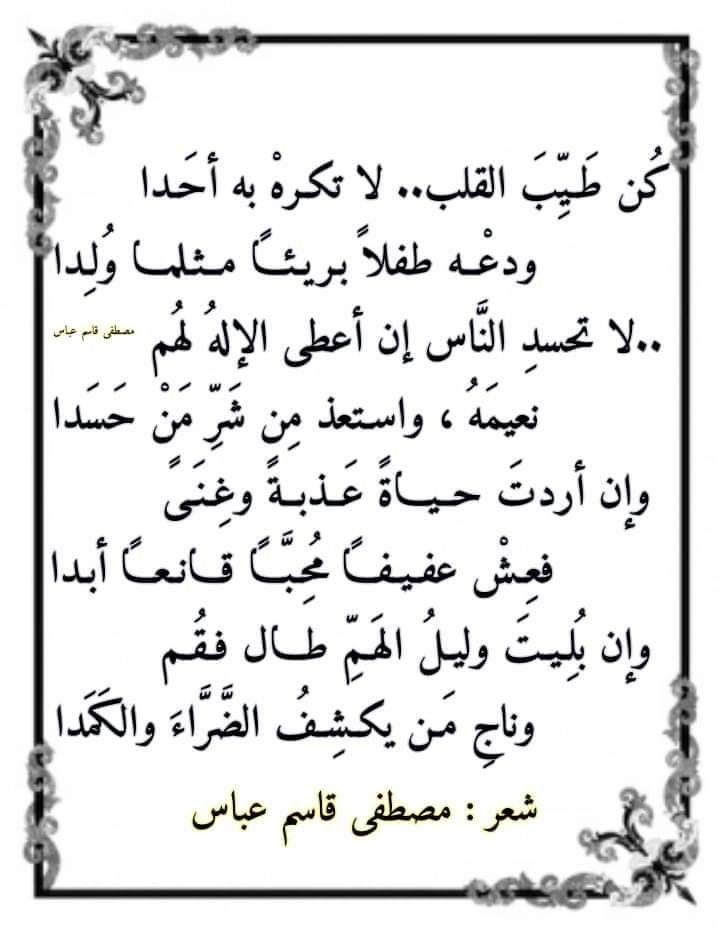 كُن طَيِّبَ القلب.. لا تكرهْ به أحَدا
ودعْـه طفلاً بريئـًا مـثلمـا وُلِدا
..لا تحسدِ النَّاس إن أعطى الإلهُ لهُم
مصطفى قاسم عباس
نعيمَهُ ، واستعذ مِن شَرِّ مَنْ حَسَدا
وإن أردتَ حـيـاةً عَـذبـةً وغِنَىً
فعِشْ عفيفـًا مُحِبَّـًا قـانعـًا أبدا
وإن بُلِيـتَ وليلُ الهَمِّ طـال فـقُـم
وناجِ مَـن يكـشِـفُ الضَّرَّاءَ والكَمَدا
شعر : مصطفى قاسم عباس